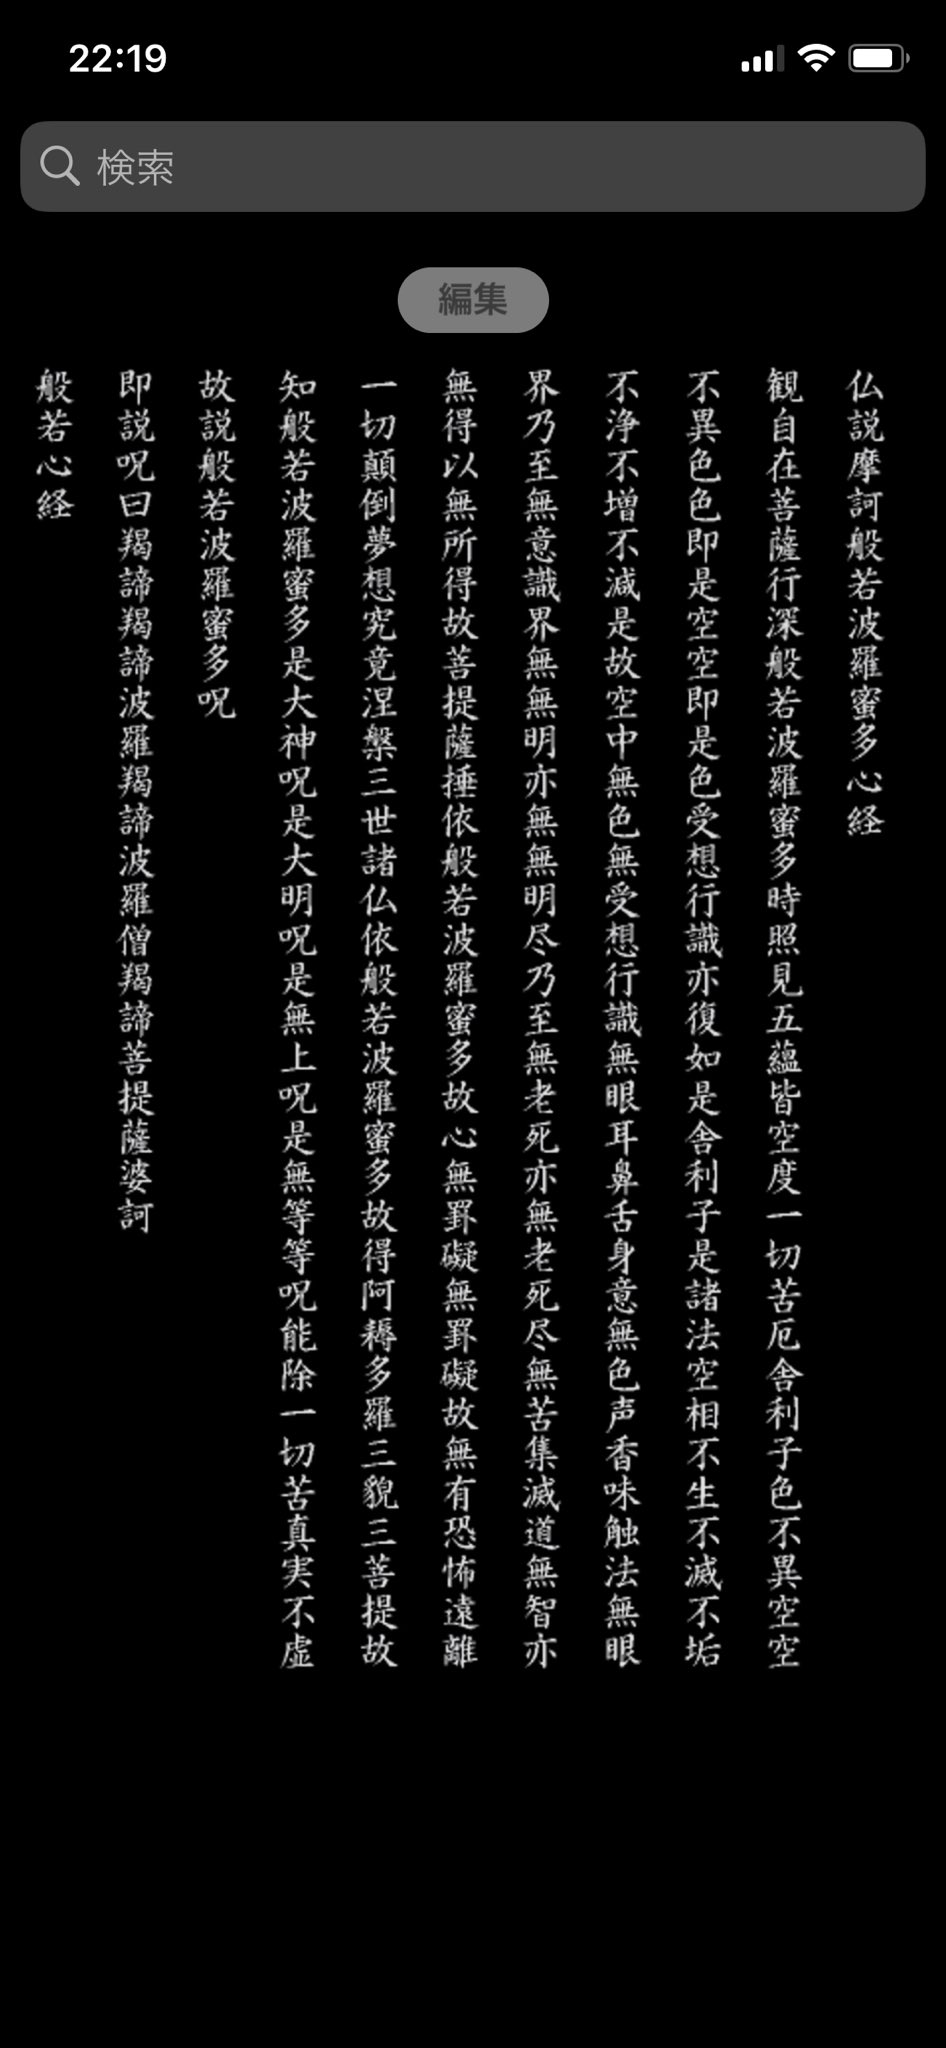 22:19
検索
編集
仏説摩訶般若波羅蜜多心経
観自在菩薩行深般若波羅蜜多時照見五蘊皆空度一切苦厄舎利子色不異空空
不異色色即是空空即是色受想行識亦復如是舎利子是諸法空相不生不滅不垢
不浄不増不減是故空中無色無受想行識無眼耳鼻舌身意無色声香味触法無眼
界乃至無意識界無無明亦無無明尽乃至無老死亦無老死尽無苦集滅道無智亦
無得以無所得故菩提薩埵依般若波羅蜜多故心無罣礙無罣礙故無有恐怖遠離
一切顛倒夢想究竟涅槃三世諸仏依般若波羅蜜多故得阿耨多羅三貌三菩提故
知般若波羅蜜多是大神呪是大明呪是無上呪是無等等呪能除一切苦真実不虚
故説般若波羅蜜多呪
即説呪曰羯諦羯諦波羅羯諦波羅僧羯諦菩提薩婆訶
般若心経